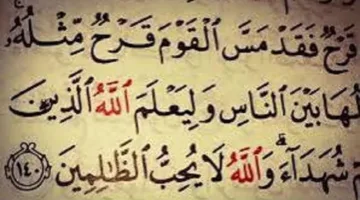 قَرْحٌ فَقَدْ مَسَّ ٱلْقَوْمَ قَرْحٌ مِّثْلُهُۥ
لُهَا بَيْنَ ٱلنَّاسِ وَلِيَعْلَمَ ٱللَّهُ ٱلَّذِينَ
شُهَدَآءَ ۗ وَٱللَّهُ لَا يُحِبُّ ٱلظَّـٰلِمِينَ ١٤٠